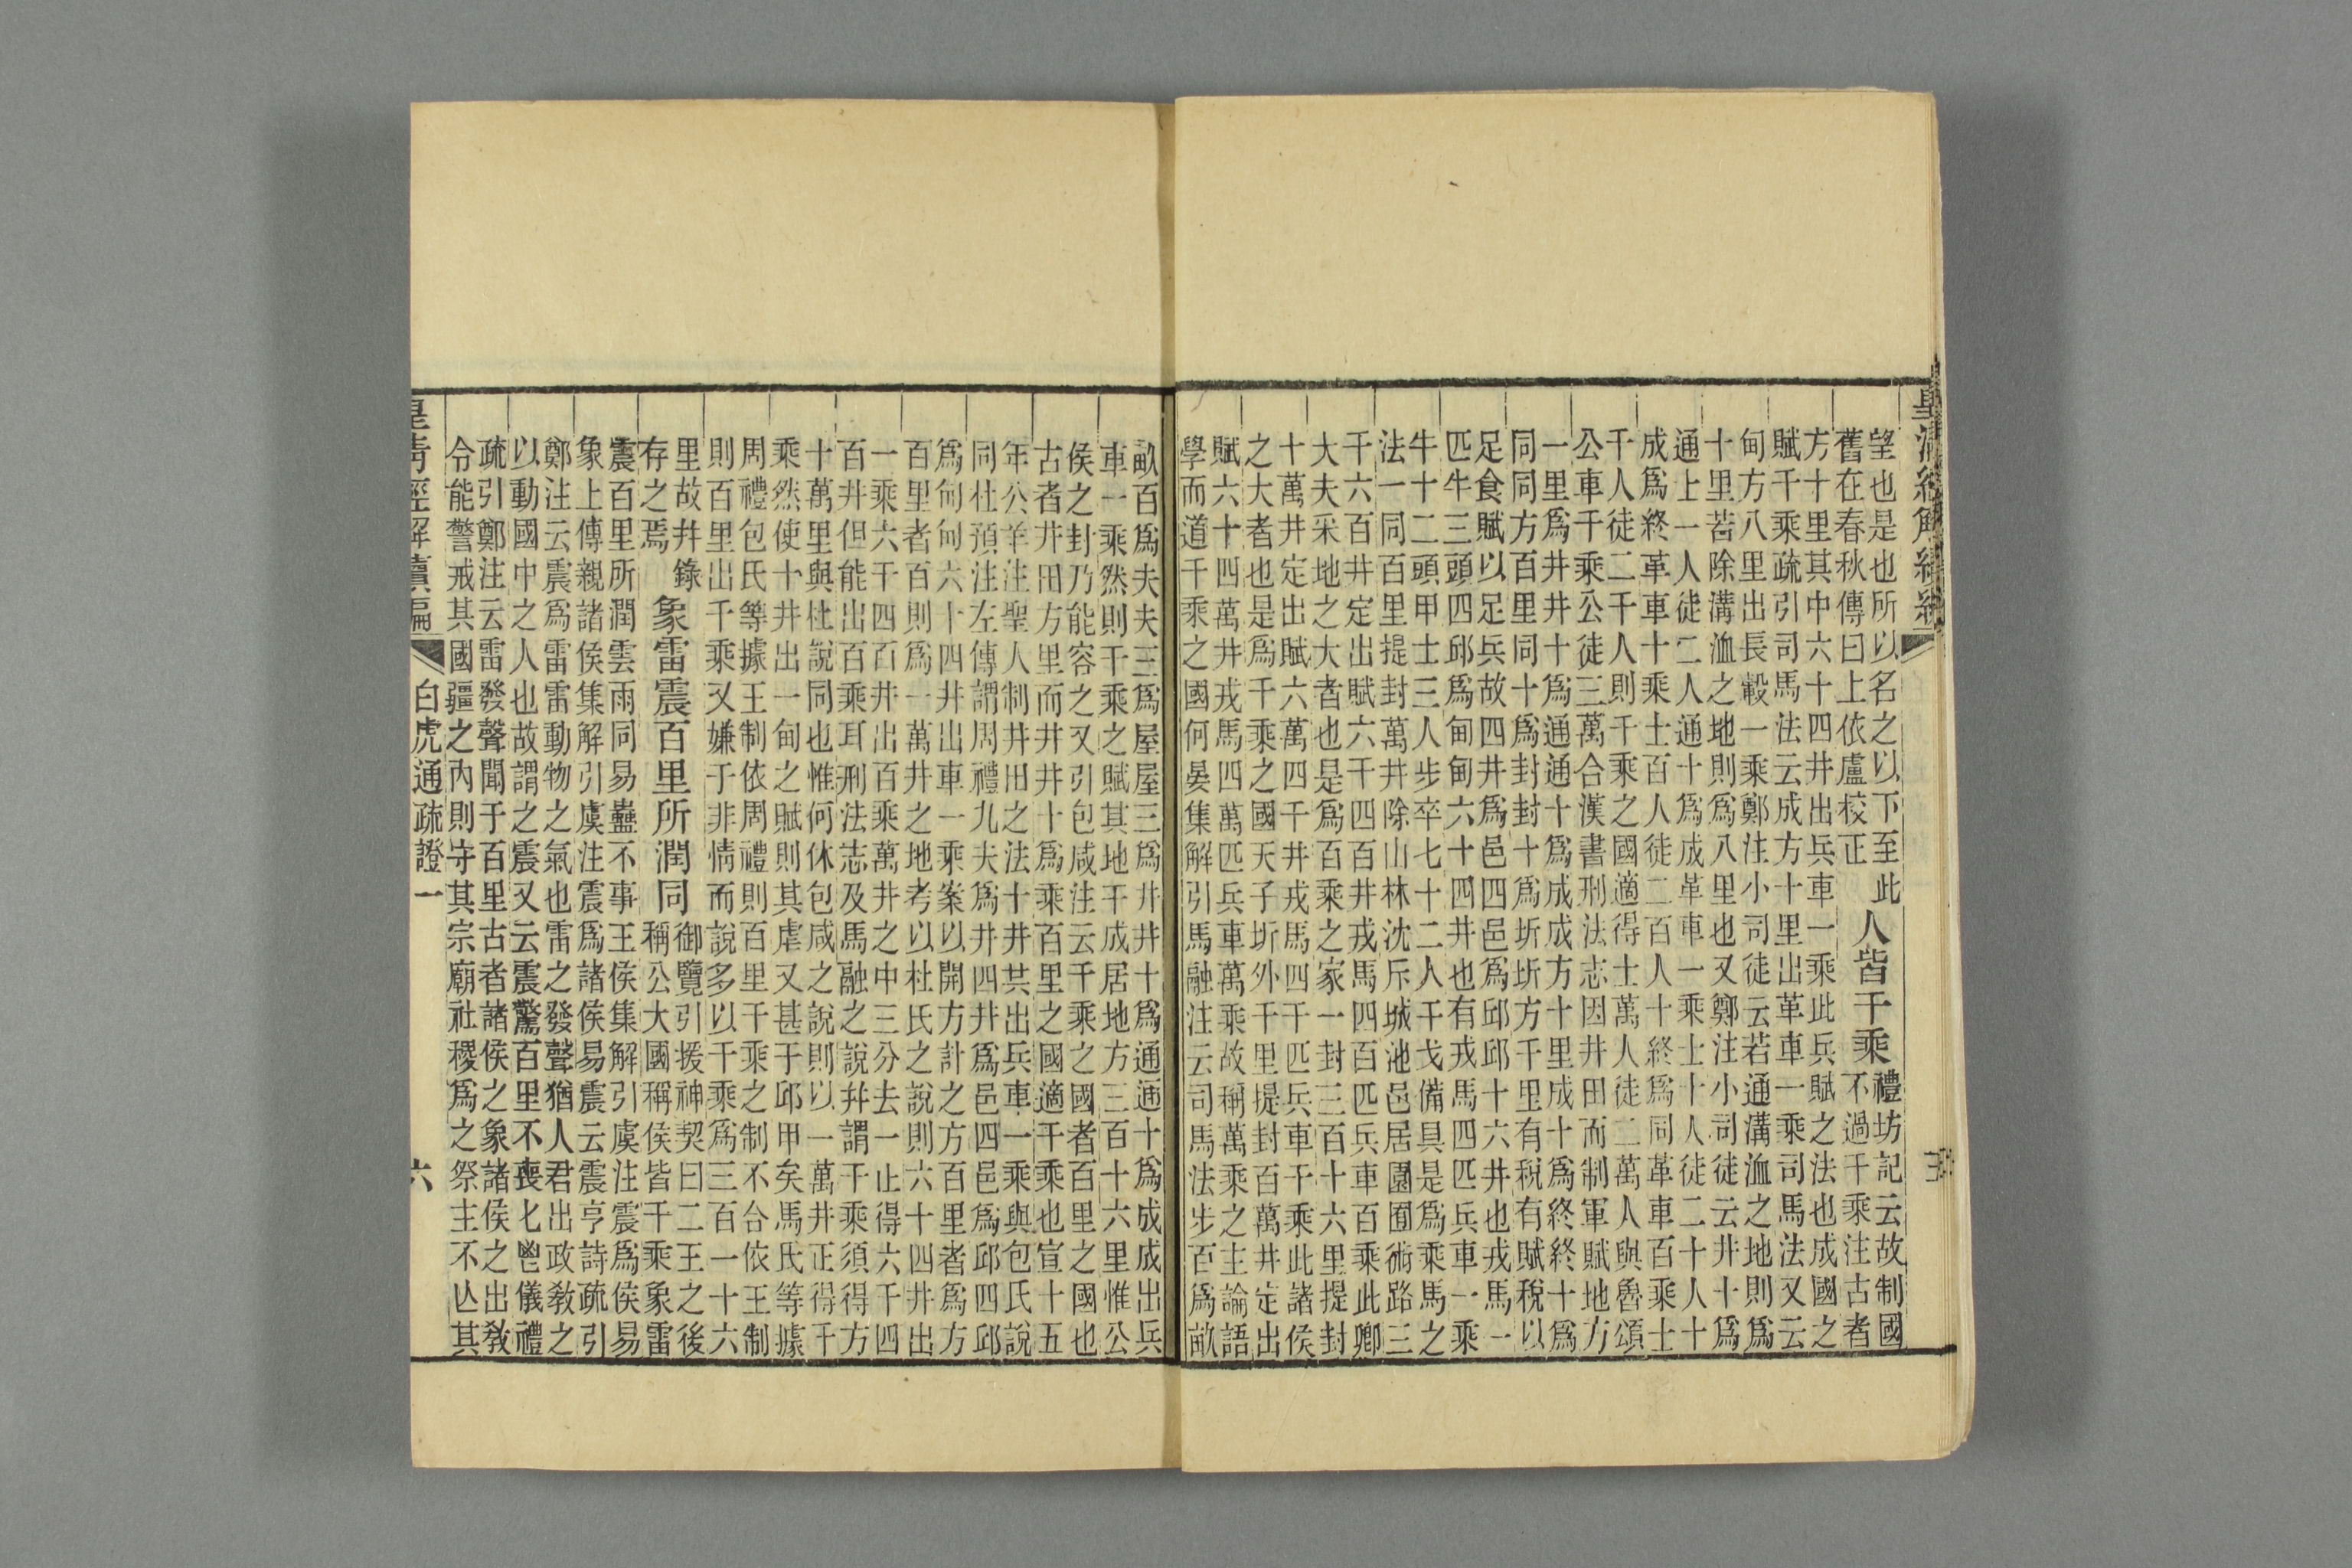 皇清經解續編
望也是也所以名之以下至此
舊在春秋傳曰上依盧校正
人皆千乘
禮坊記云故制國
不過千乘注古者
方十里其中六十四井出兵車一乘此兵賦之法也成國之
賦千乘疏引司馬法云成方十里出革車一乘司馬法又云
甸方八里出長轂一乘鄭注小司徒云若通溝洫之地則爲
十里若除溝洫之地則爲八里也又鄭注小司徒云井十爲
通上一人徒二人通十爲成革車一乘士十人徒二十人十
成爲終革車十乘士百人徒二百人十終爲同革車百乘士
千人徒二千人則千乘之國適得士萬人徒二萬人與魯頌
公車千乘公徒三萬合漢書刑法志因井田而制軍賦地方
一里爲井井十爲通通十爲成成方十里成十爲終終十爲
同同方百里同十爲封封十爲圻圻方千里有稅有賦稅以
足食賦以足兵故四井爲邑四邑爲邱邱十六井也戎馬一
匹牛三頭四邱爲甸甸六十四井也有戎馬四匹兵車一乘
牛十二頭甲士三人步卒七十二人干戈備具是爲乘馬之
法一同百里提封萬井除山林沈斥城池邑居園囿術路三
千六百井定出賦六千四百井戎馬四百匹兵車百乘此卿
大夫采地之大者也是爲百乘之家一封三百十六里提封
十萬井定出賦六萬四千井戎馬四千匹兵車千乘此諸侯
之大者也是爲千乘之國天子圻外千里提封百萬井定出
賦六十四萬井戎馬四萬匹兵車萬乘故稱萬乘之主論語
學而道千乘之國何晏集解引馬融注云司馬法步百爲畝
畝百爲夫夫三爲屋屋三爲井井十爲通通十爲成成出兵
車一乘然則千乘之賦其地千成居地方三百十六里惟公
侯之封乃能容之又引包咸注云千乘之國者百里之國也
古者井田方里而井井十爲乘百里之國適千乘也宣十五
年公羊注聖人制井田之法十井共出兵車一乘與包氏說
同杜預注左傳謂周禮九夫爲井四井爲邑四邑爲邱四邱
爲甸甸六十四井出車一乘案以開方計之方百里者爲方
百里者百則爲一萬井之地考以杜氏之說則六十四井出
一乘六千四百井出百乘萬井之中三分去一止得六千四
百井但能出百乘耳刑法志及馬融之說幷謂千乘須得方
十萬里與杜說同也惟何休包咸之說則以一萬井正得千
乘然使十井出一甸之賦則其虐又甚于邱甲矣馬氏等據
周禮包氏等據王制依周禮則百里千乘之制不合依王制
則百里出千乘又嫌于非情而說多以千乘爲三百一十六
里故幷錄
存之焉
象雷震百里所潤同
御覽引援神契曰二王之後
稱公大國稱侯皆千乘象雷
震百里所潤雲雨同易蠱不事王侯集解引虞注震爲侯易
象上傳親諸侯集解引虞注震爲諸侯易震云震亨詩疏引
鄭注云震爲雷雷動物之氣也雷之發聲猶人君出政敎之
以動國中之人也故謂之震又云震驚百里不喪匕鬯儀禮
疏引鄭注云雷發聲聞于百里古者諸侯之象諸侯之出敎
令能警戒其國疆之內則守其宗廟社稷爲之祭主不亾其
皇清經解續編
白虎通疏證一
六